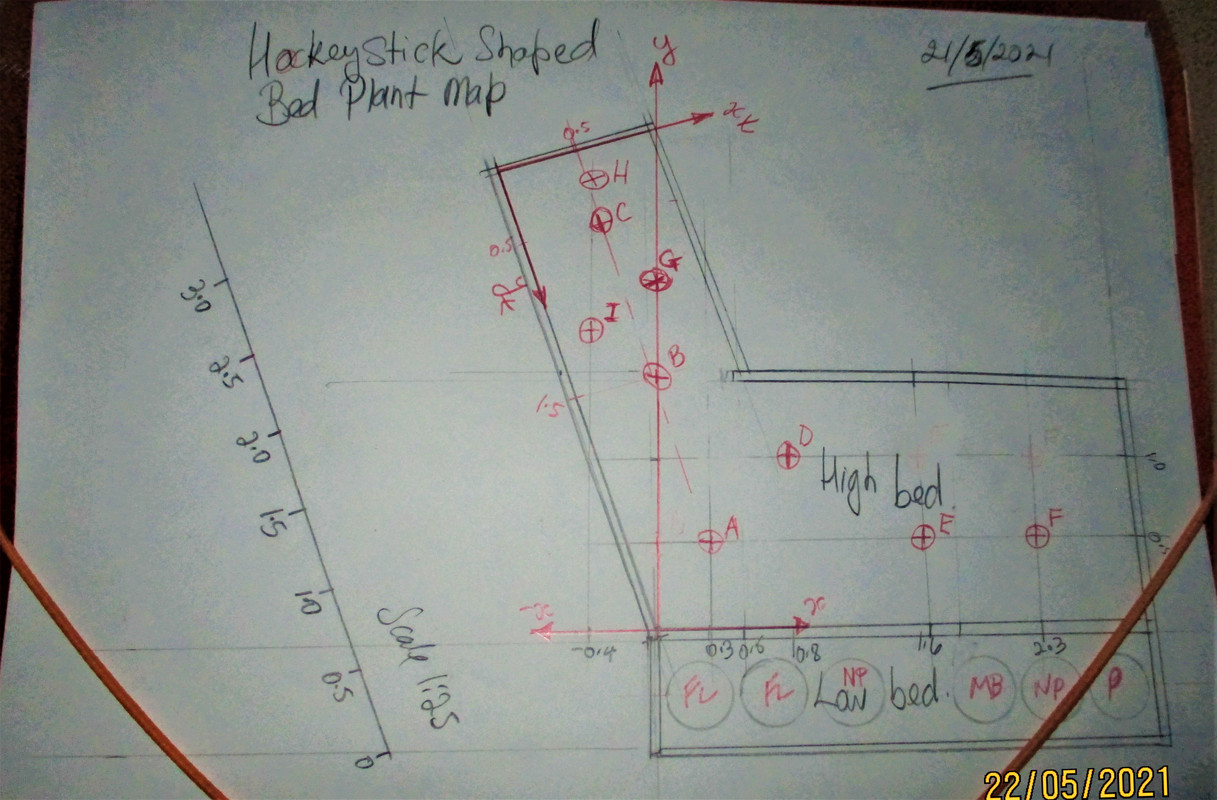 Hockey Stick Shaped
Bed Plant Map
21/5/2021
y
x
0.5
H
C
0.5
G
I
B
1.5
D
High bed.
1.0
A
E
F
-x
x
-0.4
0.3
0.6
0.8
1.6
2.3
FL
FL
NP
MB
NP
P
Low bed.
3.0
2.5
2.0
1.5
1.0
0.5
0
Scale 1:25
22/05/2021